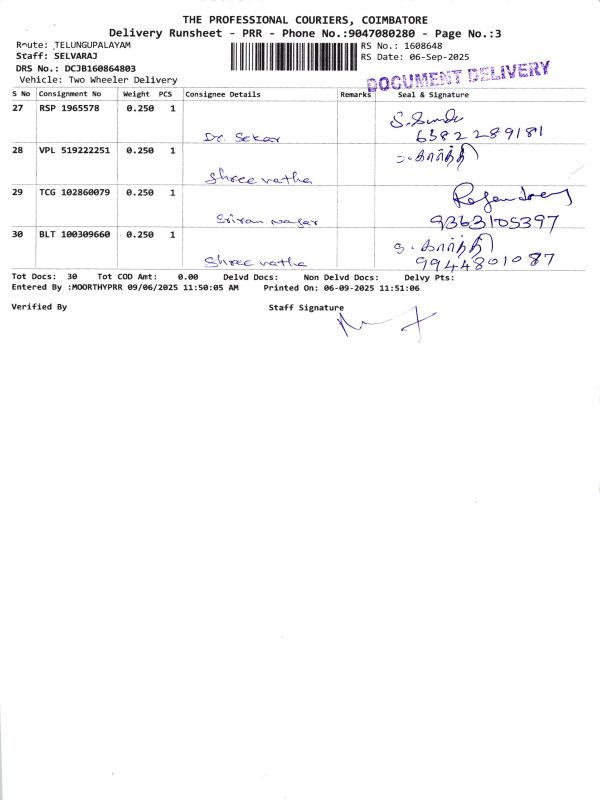 THE PROFESSIONAL COURIERS, COIMBATORE
Delivery Runsheet - PRR - Phone No.:9047080280 - Page No.:3
Route: TELUNGUPALAYAM
RS No.: 1608648
Staff: SELVARAJ
RS Date: 06-Sep-2025
DRS No.: DCJB160864803
Vehicle: Two Wheeler Delivery
DOCUMENT DELIVERY
S No Consignment No Weight PCS Consignee Details Remarks Seal & Signature
27 RSP 1965578 0.250 1
Dr. Sekar
6382289181
28 VPL 519222251 0.250 1
Shree vatha
உ. கார்த்தி
29 TCG 102860079 0.250 1
nagar
9363105397
30 BLT 100309660 0.250 1
Shree vatha
உ. கார்த்தி
9944801087
Tot Docs: 30 Tot COD Amt: 0.00 Delvd Docs: Non Delvd Docs: Delvy Pts:
Entered By :MOORTHYPRR 09/06/2025 11:50:05 AM Printed On: 06-09-2025 11:51:06
Verified By Staff Signature